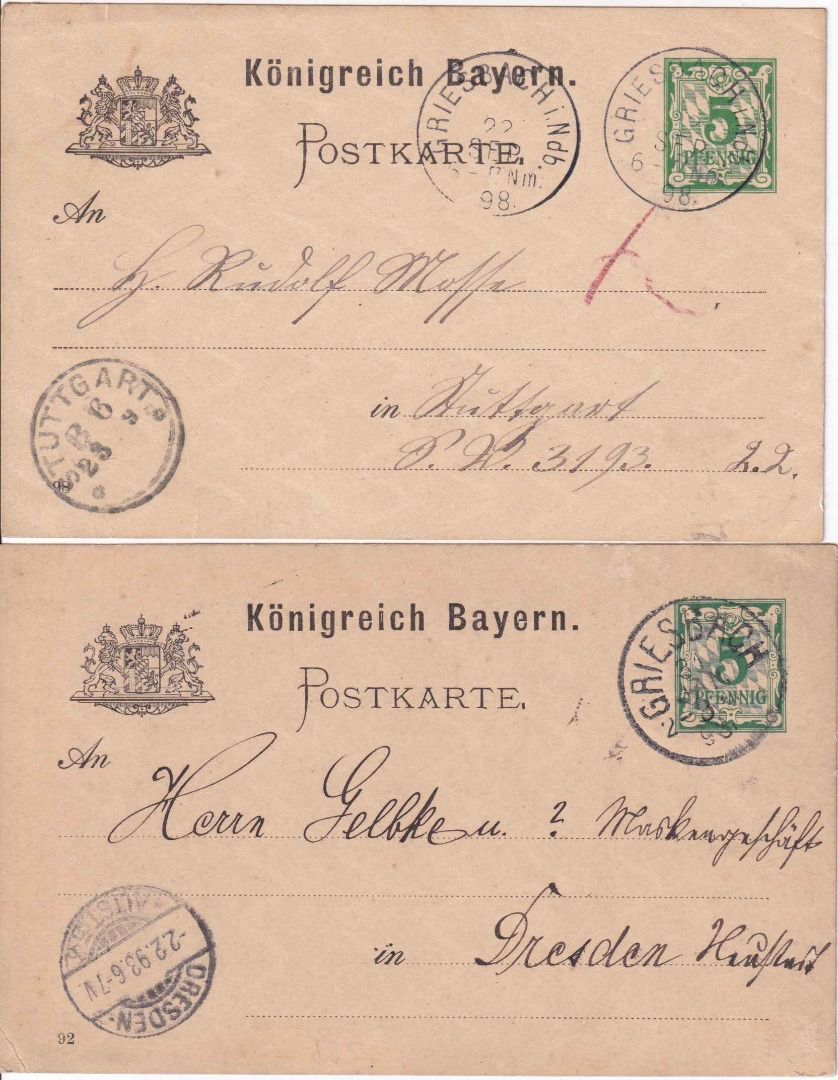 Königreich Bayern.
POSTKARTE.
GRIESBACH i. Ndb.
22
SEP
Nm.
98.
GRIESBACH i. Ndb.
SEP
6
98.
5
PFENNIG
An
H. Rudolf Mosse
in Stuttgart
S. W. 3193. 2.2.
STUTTGART
6
23 9
98
Königreich Bayern.
POSTKARTE.
GRIESBACH
5
PFENNIG
An
Herrn Gelbke u. ? Maskengeschäft
in Dresden Neustadt
DRESDEN-
ALTST.
-2.2.93.6-7N.
92